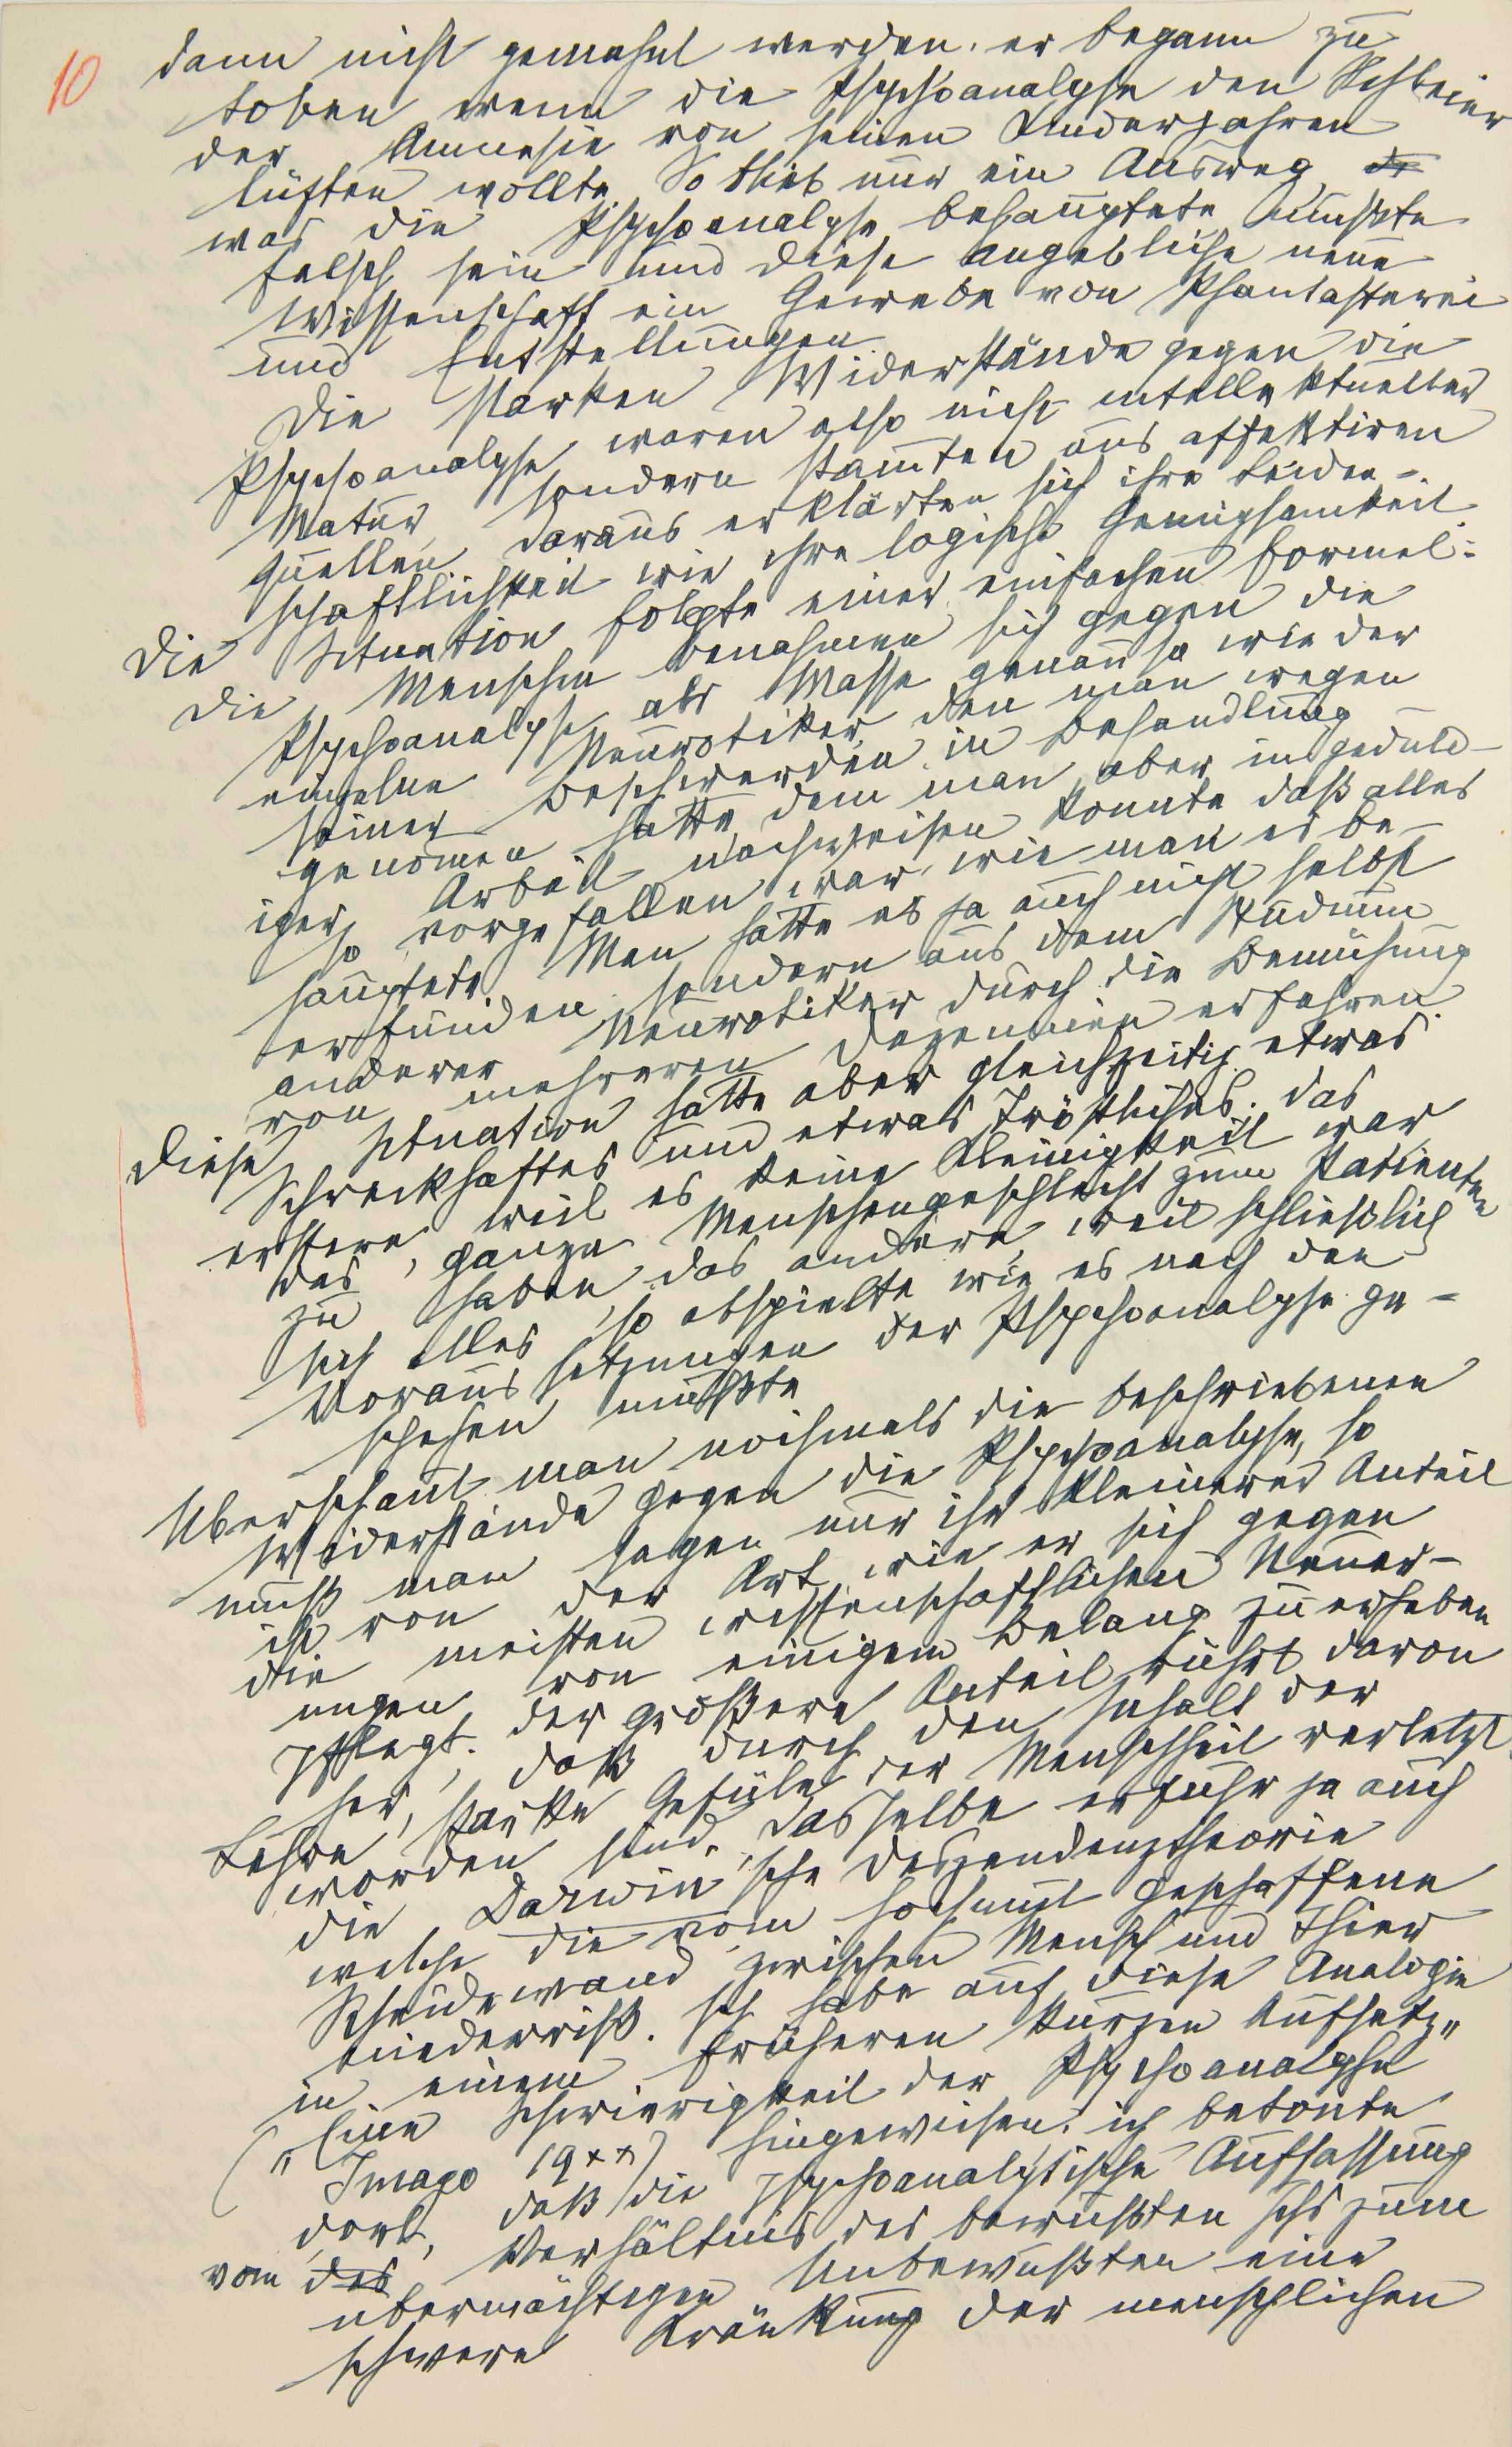 10
daran nicht gemahnt werden. er begann zu
toben wenn die Psychoanalyse den Schleier
der Amnesie von seinen Kinderjahren
lüften wollte. So blieb nur ein Ausweg
was die Psychoanalyse behauptete mußte
falsch sein und diese angebliche neue
Wissenschaft ein Gewebe von Phantasterei
und Entstellungen
Die starken Widerstände gegen die
Psychoanalyse waren also nicht intellektueller
Natur sondern stam̅ten aus affektiven
Quellen, Daraus erklärten sich ihre Leiden-
schaftlichkeit wie ihre logische Genügsamkeit
Die Situation folgte einer einfachen Formel:
die Menschen benahmen sich gegen die
Psychoanalyse als Masse genau so wie der
einzelne Neurotiker, den man wegen
seiner Beschwerden in Behandlung
genom̅en hatte, dem man aber in geduld-
iger Arbeit nachweisen konnte daß alles
so vorgefallen war, wie man es be-
hauptete. Man hatte es ja auch nicht selbst
erfunden, sondern aus dem Studium
anderer Neurotiker durch die Bemühung
von mehreren Dezennien erfahren.
Diese Situation hatte aber gleichzeitig etwas
Schreckhaftes und etwas Tröstliches. das
erstere weil es keine Kleinigkeit war,
das ganze Menschengeschlecht zum Patienten
zu haben, das andere, weil schließlich
sich alles so abspielte wie es nach den
Voraussetzungen der Psychoanalyse ge-
schehen mußte
Überschaut man nochmals die beschriebenen
Widerstände gegen die Psychoanalyse, so
muß man sagen nur ihr kleinerer Anteil
ist von der Art, wie er sich gegen
die meisten wissenschaftlichen Neuer-
ungen von einigem Belang zu erheben
pflegt. der größere Anteil rührt davon
her, daß durch den Inhalt der
Lehre starke Gefüle der Menschheit verletzt
worden sind. Dasselbe erfuhr ja auch
die Darwin'sche Deszendenztheorie
welche die vom Hochmut geschaffene
Scheidewand zwischen Mensch und Thier
niederriß. Ich habe auf diese Analogie
in einem früheren kurzen Aufsatz„
("Eine Schwierigkeit der Psychoanalyse
Imago 19xx) hingewiesen. ich betonte
dort, daß die psychoanalytische Auffassung
vom des Verhältnis des bewußten Ichs zum
übermächtigen Unbewußten eine
schwere Kränkung der menschlichen